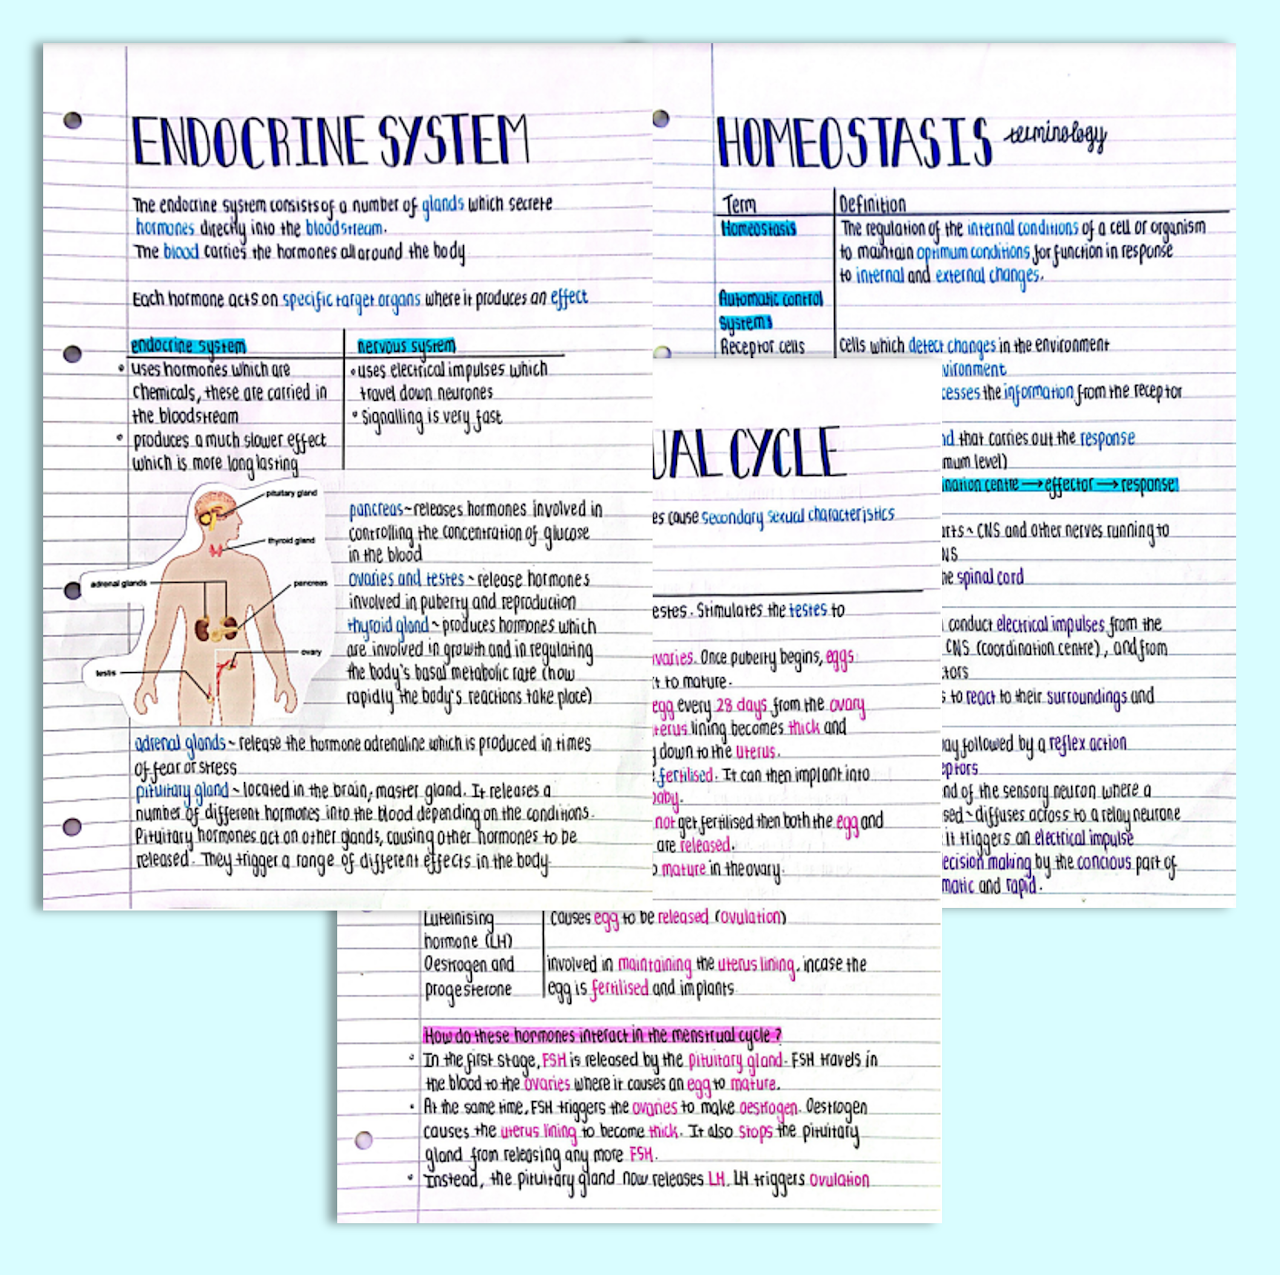 ENDOCRINE SYSTEM
The endocrine system consists of a number of glands which secrete
hormones directly into the bloodstream.
The blood carries the hormones all around the body
Each hormone acts on specific target organs where it produces an effect
endocrine system
• uses hormones which are
chemicals, these are carried in
the bloodstream
• produces a much slower effect
which is more long lasting
nervous system
• uses electrical impulses which
travel down neurones
• Signalling is very fast
pituitary gland
thyroid gland
adrenal glands
pancreas
ovary
testis
pancreas ~ releases hormones involved in
controlling the concentration of glucose
in the blood
ovaries and testes ~ release hormones
involved in puberty and reproduction
thyroid gland ~ produces hormones which
are involved in growth and in regulating
the body's basal metabolic rate (how
rapidly the body's reactions take place)
adrenal glands ~ release the hormone adrenaline which is produced in times
of fear or stress
pituitary gland ~ located in the brain, master gland. It releases a
number of different hormones into the blood depending on the conditions.
Pituitary hormones act on other glands, causing other hormones to be
released. They trigger a range of different effects in the body
HOMEOSTASIS terminology
Term Definition
Homeostasis The regulation of the internal conditions of a cell or organism
to maintain optimum conditions for function in response
to internal and external changes.
Automatic control
systems
Receptor cells cells which detect changes in the environment
vironment
cesses the information from the receptor
nd that carries out the response
mum level)
ination centre → effector → response
arts ~ CNS and other nerves running to
NS
he spinal cord
conduct electrical impulses from the
CNS (coordination centre), and from
tors
s to react to their surroundings and
ay followed by a reflex action
eptors
nd of the sensory neuron where a
sed ~ diffuses across to a relay neurone
it triggers an electrical impulse
ecision making by the concious part of
matic and rapid.
UAL CYCLE
es cause secondary sexual characteristics
estes. Stimulates the testes to
varies. Once puberty begins, eggs
t to mature.
egg every 28 days from the ovary
terus lining becomes thick and
g down to the uterus.
fertilised. It can then implant into
baby.
not get fertilised then both the egg and
are released.
o mature in the ovary.
Luteinising
hormone (LH)
causes egg to be released (ovulation)
Oestrogen and
progesterone
involved in maintaining the uterus lining, incase the
egg is fertilised and implants
How do these hormones interact in the menstrual cycle?
• In the first stage, FSH is released by the pituitary gland. FSH travels in
the blood to the ovaries where it causes an egg to mature.
• At the same time, FSH triggers the ovaries to make oestrogen. Oestrogen
causes the uterus lining to become thick. It also stops the pituitary
gland from releasing any more FSH.
• Instead, the pituitary gland now releases LH. LH triggers ovulation